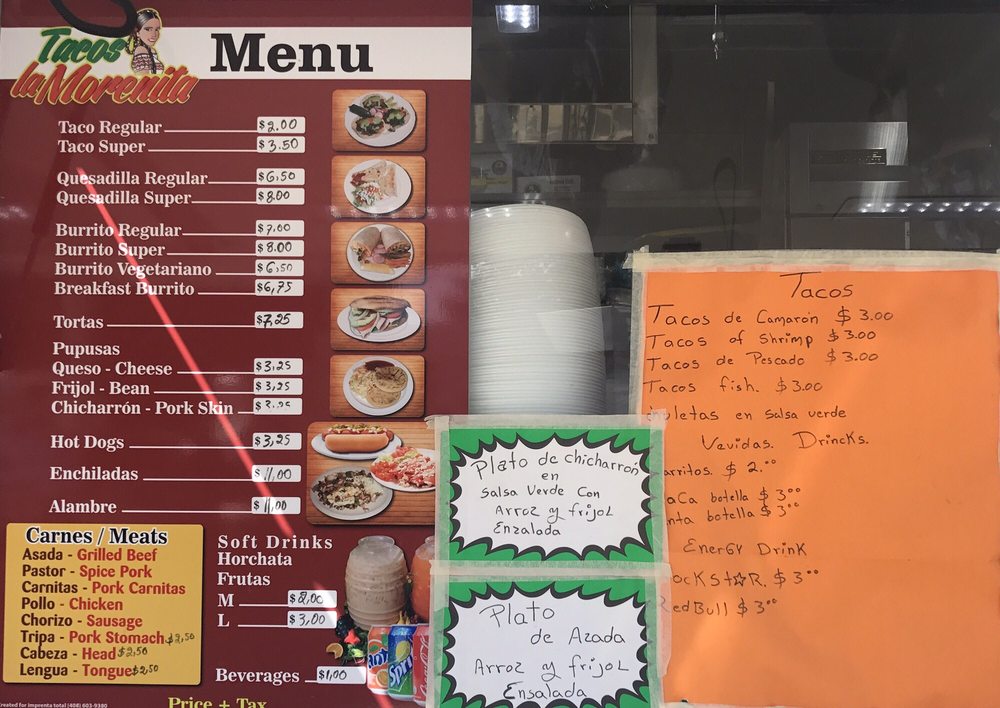 Tacos
la Morenita
Menu
Taco Regular $2.00
Taco Super $3.50
Quesadilla Regular $6,50
Quesadilla Super $8.00
Burrito Regular $7,00
Burrito Super $8.00
Burrito Vegetariano $6,50
Breakfast Burrito $6,75
Tortas $7,25
Pupusas
Queso - Cheese $3,25
Frijol - Bean $3,25
Chicharrón - Pork Skin
Hot Dogs $3,25
Enchiladas $11,00
Alambre $11,00
Carnes / Meats
Asada - Grilled Beef
Pastor - Spice Pork
Carnitas - Pork Carnitas
Pollo - Chicken
Chorizo - Sausage
Tripa - Pork Stomach $2,50
Cabeza - Head $2,50
Lengua - Tongue $2,50
Soft Drinks
Horchata
Frutas
M $2,00
L $3,00
Beverages $1,00
Price + Tax
reated for Imprenta total (408) 603-9380
Plato de chicharrón
en
Salsa Verde Con
Arroz y frijol
Enzalada
Plato
de Azada
Arroz y frijol
Ensalada
Tacos
Tacos de Camarón $3.00
Tacos of Shrimp $3.00
Tacos de Pescado $3.00
Tacos fish. $3.00
letas en salsa verde
Vevidas. Drincks.
arritos. $2.00
aCa botella $300
nta botella $300
Energy Drink
ockStaR. $300
RedBull $300